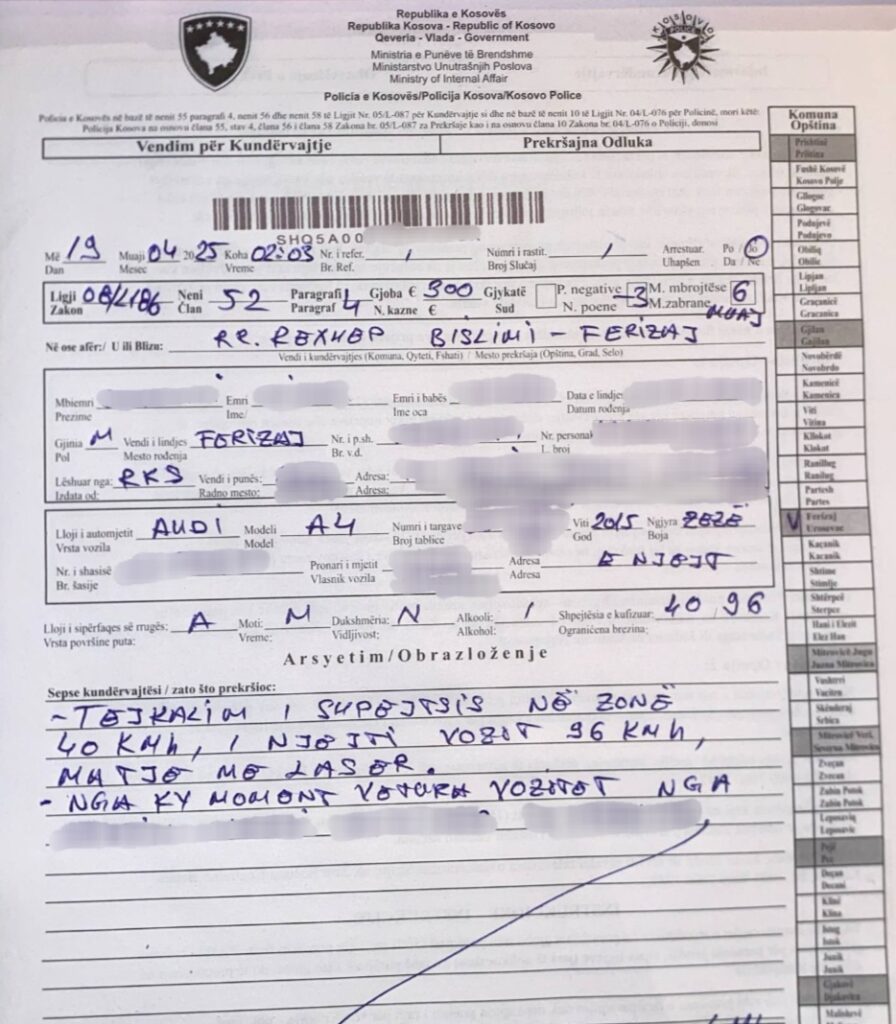 Republika e Kosovës
Republika Kosova - Republic of Kosovo
Qeveria - Vlada - Government
Ministria e Punëve të Brendshme
Ministarstvo Unutrašnjih Poslova
Ministry of Internal Affair
Policia e Kosovës/Policija Kosova/Kosovo Police
KOSOVO
POLICE
Policia e Kosovës në bazë të nenit 55 paragrafi 4, nenit 56 dhe nenit 58 të Ligjit Nr. 05/L-087 për Kundërvajtje si dhe në bazë të nenit 10 të Ligjit Nr. 04/L-076 për Policinë, mori këtë:
Policija Kosova na osnovu člana 55, stav 4, člana 56 i člana 58 Zakona br. 05/L-087 za Prekršaje kao i na osnovu člana 10 Zakona br. 04/L-076 o Policiji, donosi
Vendim për Kundërvajtje Prekršajna Odluka
SHQ5A00
Më 19 Muaji 04 2025 Koha 02:03 Nr. i refer. / Numri i rastit. / Arrestuar. Po / Jo
Dan Mesec Vreme Br. Ref. Broj Slučaj Uhapšen Da / Ne
Ligji 08/L186 Neni 52 Paragrafi 4 Gjoba € 300 Gjykatë P. negative -3 M. mbrojtëse 6
Zakon Član Paragraf N. kazne € Sud N. poene M.zabrane MUAJ
Në ose afër:/ U ili Blizu: RR. REXHEP BISLIMI - FERIZAJ
Vendi i kundërvajtjes (Komuna, Qyteti, Fshati) / Mesto prekršaja (Opština, Grad, Selo)
Mbiemri Emri Emri i babës Data e lindjes
Prezime Ime/ Ime oca Datum rođenja
Gjinia M Vendi i lindjes FERIZAJ Nr. i p.sh. Nr. personal
Pol Mesto rođenja Br. v.d. L. broj
Lëshuar nga: RKS Vendi i punës: Adresa:
Izdata od: Radno mesto: Adresa:
Lloji i automjetit AUDI Modeli A4 Numri i targave Viti 2015 Ngjyra ZEZË
Vrsta vozila Model Broj tablice God Boja
Nr. i shasisë Pronari i mjetit Adresa E NJEJT
Br. šasije Vlasnik vozila Adresa
Lloji i sipërfaqes së rrugës: A Moti: M Dukshmëria: N Alkooli: / Shpejtësia e kufizuar: 40, 96
Vrsta površine puta: Vreme: Vidljivost: Alkohol: Ograničena brezina:
Arsyetim/Obrazloženje
Sepse kundërvajtësi / zato što prekršioc:
- TEJKALIM I SHPEJTSIS NË ZONË
40 KMh, I NJEJTI VOZIT 96 KMh,
MATJE ME LASER.
- NGA KY MOMENT VETURA VOZITET NGA
Komuna
Opština
Prishtinë
Priština
Fushë Kosovë
Kosovo Polje
Gllogoc
Glogovac
Podujevë
Podujevo
Obiliq
Obilic
Lipjan
Lipljan
Graçanicë
Gracanica
Gjilan
Gnjilane
Novobërdë
Novobrdo
Kamenicë
Kamenica
Viti
Vitina
Kllokot
Klokot
Ranillug
Ranilug
Partesh
Partes
Ferizaj
Urosevac
Kaçanik
Kacanik
Shtime
Stimlje
Shtërpcë
Sterpce
Hani i Elezit
Elez Han
Mitrovicë Jugu
Juzna Mitrovica
Vushtrri
Vucitrn
Skënderaj
Srbica
Mitrovicë Veri
Severna Mitrovica
Zveçan
Zvecan
Zubin Potok
Zubin Potok
Leposaviq
Leposavic
Pejë
Pec
Deçan
Decani
Klinë
Klina
Istog
Istok
Junik
Junik
Gjakovë
Djakovica
Malishevë